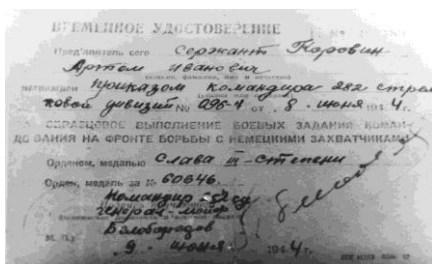 ВРЕМЕННОЕ УДОСТОВЕРЕНИЕ
Пред'явитель сего Сержант Коровин
Артем Иванович
награжден приказом командира 282 стрел
ковой дивизии № 096-Н от 8. июня 1944г.
ОБРАЗЦОВОЕ ВЫПОЛНЕНИЕ БОЕВЫХ ЗАДАНИЙ КОМАН-
ДОВАНИЯ НА ФРОНТЕ БОРЬБЫ С НЕМЕЦКИМИ ЗАХВАТЧИКАМИ
Орденом, медалью Слава III-степени
Орден, медаль за № 60646.
Командир
генерал-майор
Белобородов
М. П. 9 - июня 1944г.